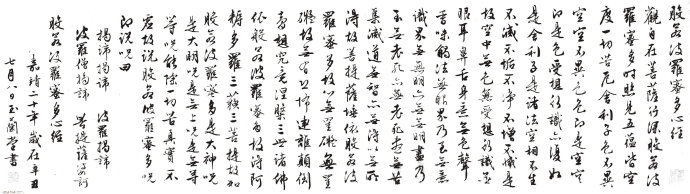 般若波羅蜜多心經
觀自在菩薩行深般若波
羅蜜多時照見五蘊皆空
度一切苦厄舍利子色不異
空空不異色色即是空空
即是色受想行識亦復如
是舍利子是諸法空相不生
不滅不垢不淨不增不減是
故空中無色無受想行識無
眼耳鼻舌身意無色聲
香味觸法無眼界乃至無意
識界無無明亦無無明盡乃
至無老死亦無老死盡無苦
集滅道無智亦無得以無所
得故菩提薩埵依般若波
羅蜜多故心無罣礙無罣
礙故無有恐怖遠離顛倒
夢想究竟涅槃三世諸佛
依般若波羅蜜多故得阿
耨多羅三藐三菩提故知
般若波羅蜜多是大神咒
是大明咒是無上咒是無
等等咒能除一切苦真實不
虛故說般若波羅蜜多咒
即說咒曰
揭諦揭諦 波羅揭諦
波羅僧揭諦 菩提薩婆訶
般若波羅蜜多心經
嘉靖二十年歲在辛丑
七月八日玉蘭堂書